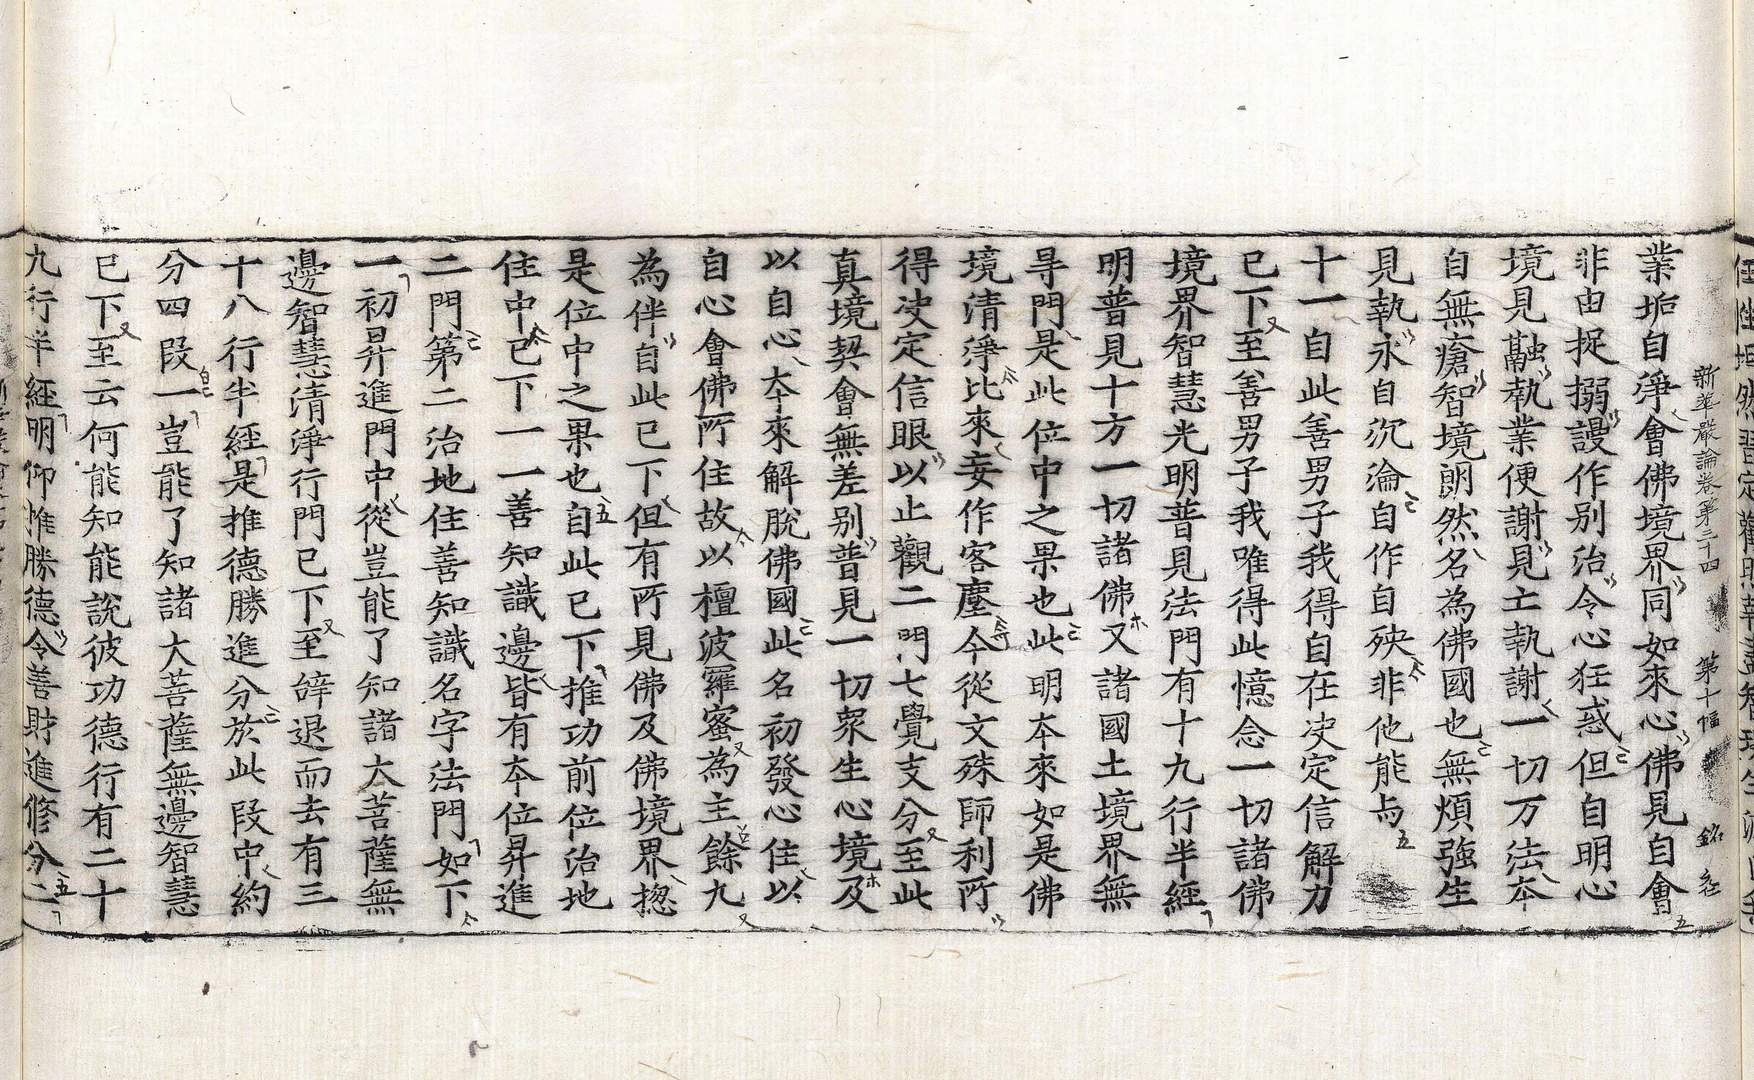 新華嚴論卷第三十四　第十幅　銘社
業垢自淨會佛境界同如來心佛見自會
非由捉搦謾作別治令心狂惑但自明心
境見融執業便謝見亡執謝一切万法夲
自無瘡智境朗然名為佛國也無煩強生
見執永自沉淪自作自殃非他能与
十一自此善男子我得自在决定信解力
已下至善男子我唯得此憶念一切諸佛
境界智慧光明普見法門有十九行半經
明普見十方一切諸佛又諸國土境界無
㝵門是此位中之果也此明夲來如是佛
境清淨比來妄作客塵今從文殊師利所
得决定信眼以止觀二門七覺支分至此
真境契會無差别普見一切衆生心境及
以自心夲來解脫佛國此名初發心住以
自心會佛所住故以檀波羅蜜為主餘九
為伴自此已下但有所見佛及佛境界揔
是位中之果也自此已下推功前位治地
住中已下一一善知識邊皆有夲位昇進
二門第二治地住善知識名字法門如下
一初昇進門中從豈能了知諸大菩薩無
邊智慧清淨行門已下至辝退而去有三
十八行半經是推德勝進分於此段中約
分四段一豈能了知諸大菩薩無邊智慧
已下至云何能知能說彼功德行有二十
九行半經明仰推勝德令善財進修分二